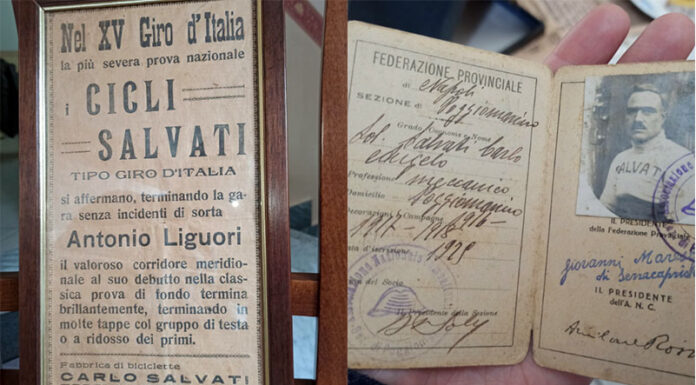 Nel XV Giro d'Italia
la più severa prova nazionale
i CICLI
SALVATI
TIPO GIRO D'ITALIA
si affermano, terminando la ga-
ra senza incidenti di sorta
Antonio Liguori
il valoroso corridore meridio-
nale al suo debutto nella clas-
sica prova di fondo termina
brillantemente, terminando in
molte tappe col gruppo di testa
o a ridosso dei primi.
Fabbrica di biciclette
CARLO SALVATI
FEDERAZIONE PROVINCIALE
di Napoli
SEZIONE di Poggiomarino
Grado Cognome e Nome
Sol. Salvati Carlo
Professione meccanico
Domicilio Poggiomarino
Decorazioni Campagne 1916-
1917-1918
Data d'iscrizione 1925
Firma del Socio
Il Presidente della Sezione
SALVATI
IL PRESIDENTE
della Federazione Provinciale
giovanni
di
IL PRESIDENTE
dell'A. N. C.